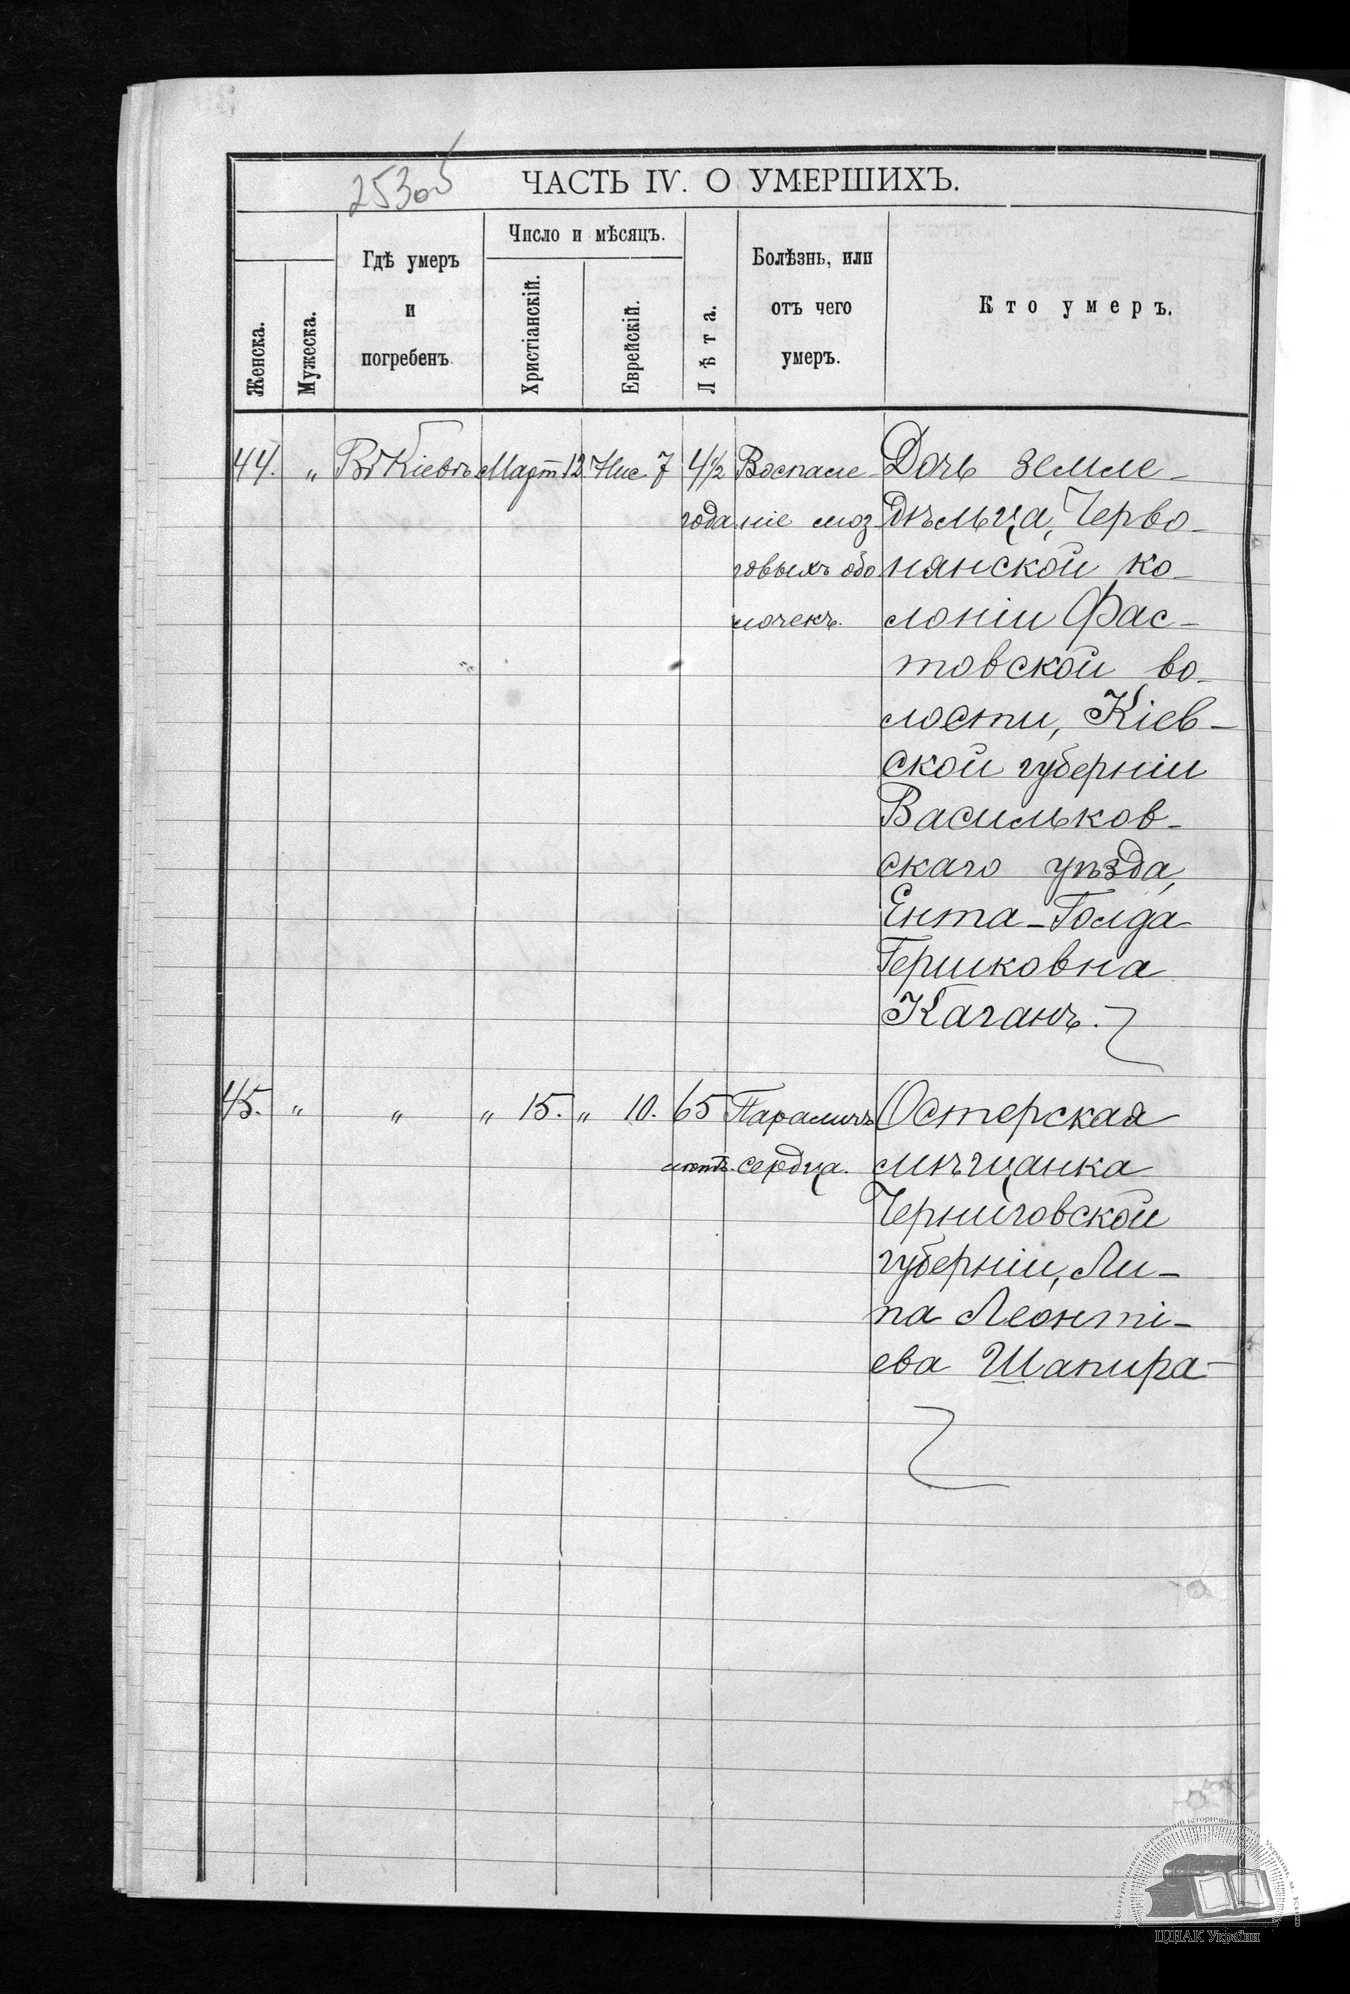 253об
ЧАСТЬ IV. О УМЕРШИХЪ.
Женска.
Мужеска.
Гдѣ умеръ
и
погребенъ.
Число и мѣсяцъ.
Христіанскій.
Еврейскій.
Лѣта.
Болѣзнь, или
отъ чего
умеръ.
Кто умеръ.
44. „ Въ Кіевѣ Март. 12. Нис 7 4½ Воспале Дочь земле-
года ніе моз дѣльца, Черво-
говыхъ обо нянской ко-
лочекъ. лоніи Фас-
товской во-
лости, Кіев-
ской губерніи
Васильков-
скаго уѣзда,
Ента-Голда
Гершковна
Каганъ.
45. „ „ „ 15. „ 10. 65 Параличъ Остерская
лѣтъ. сердца. мѣщанка
Черниговской
губерніи, Ли-
па Леонті-
ева Шапира-
ЦДІАК України